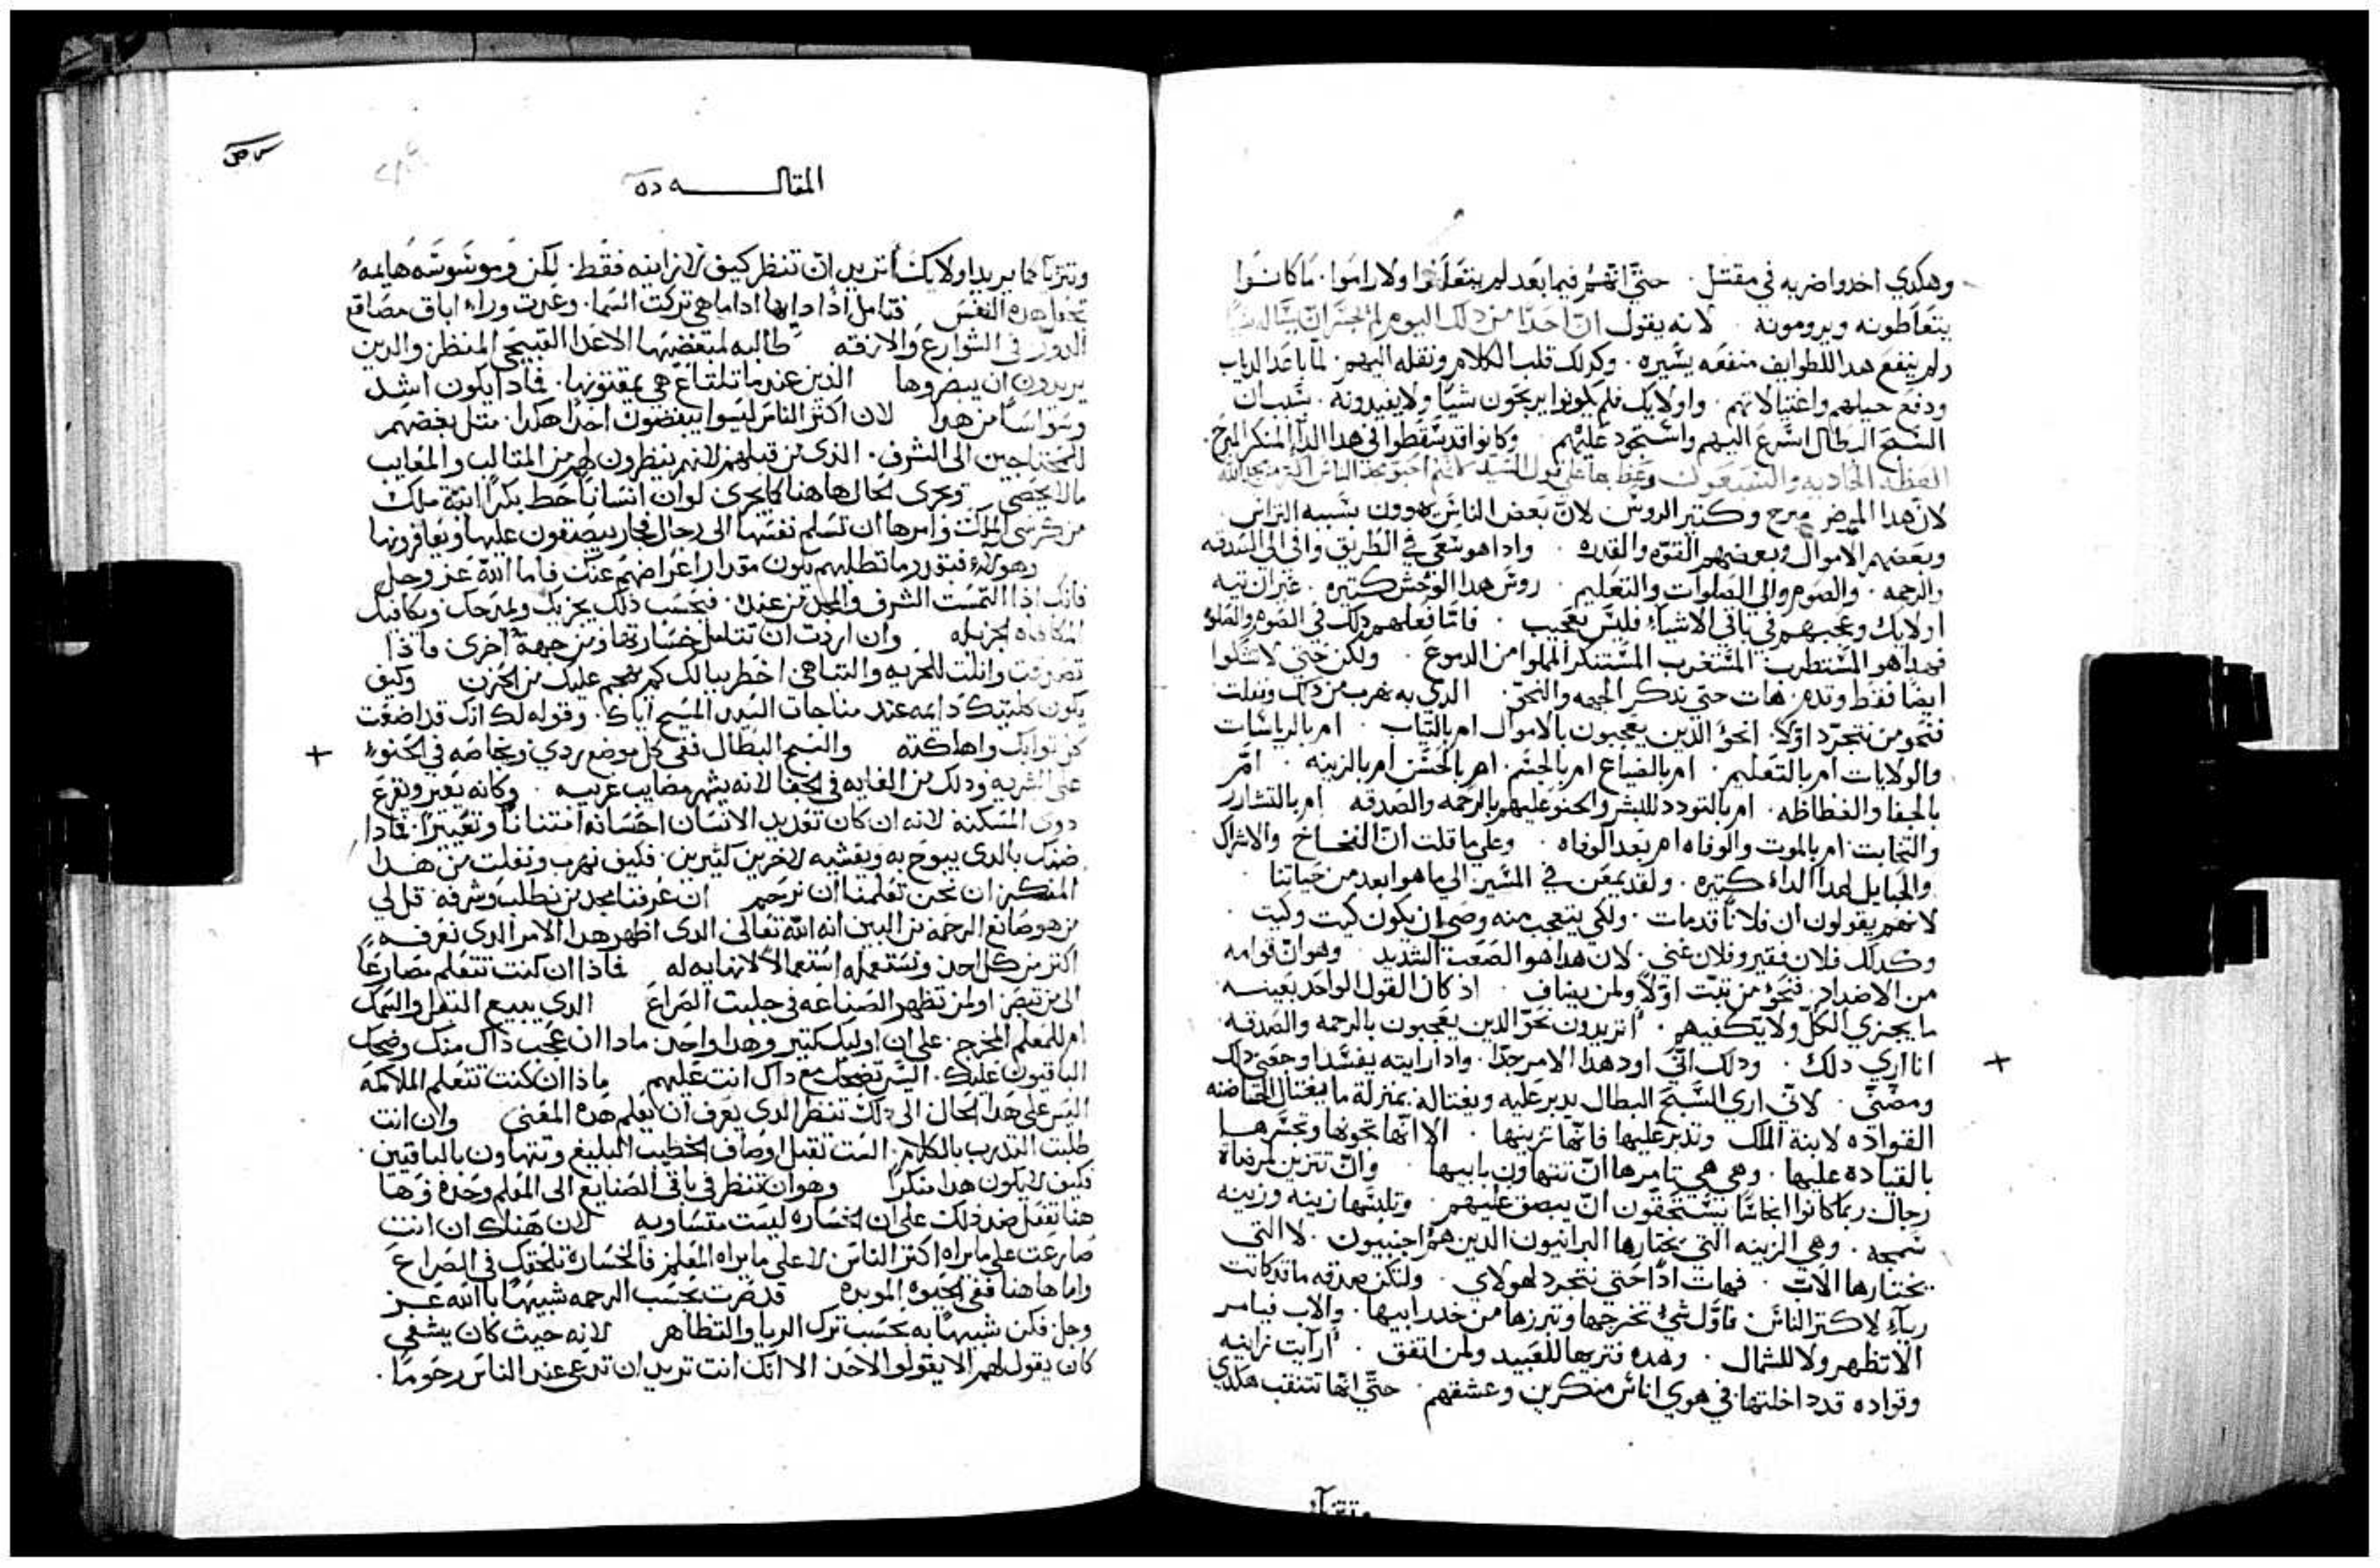 وهكدي اخدوا ضربه في مقتل. حتَّي انّهُم فيما بَعد لم يتعَلَّموا ولا راموا. مَا كانوا
يتعَاطونه ويرومونه. لانه يقول انّ احدًا من دلك اليوم لم يجسَر ان يسَاله شيا
ولم ينفع هدا للطوايف منفعَه يسَيره. وكدلك قلب الكلام ونقله اليهم. لما باعَد الدياب
ودفع حيلهم واغتيالاتهم. واولايك فلم يكونوا يربحَون شيًا ولا يفيدونه. بسَبب ان
السَبح البطال اسَرع اليهم واسَتحود عَليهم. وكانوا قد سَقطوا في هدا الدآ المنكر المبرح.
العظه الحاديه والسَبعون وعظ بها علي قول السَيد لانهم احبّو مجد الناس اكثر من مجد الله
لانّ هدا المرض مبرح وكتير الروسَ لانّ بَعض الناسَ يهوون بسَببه التراسَ
وبعَضهم الاموال وبعضهم القوّه والقدره. وادا هو سَعَي في الطَريق وافي الي الصَدقه
والرحمه. والصَوم والي الصَلوات والتعَليم. روسَ هدا الوحَش كتيره. غير ان تيه
اولايك وعَجبهم في باقي الاشيآء فليسَ بعَجيب. فامّا فعلهم دلك في الصَوم والصَلوه
فهدا هو المسَتطرب المسَتغرب المسَتنكر المملوا من الدموع. ولكن حَتي لا نشَكوا
ايضًا فقط وندم. هات حتي ندكر الجهه والنحَو. الدي به نهرب من دلك ونفلت
فنحَو من نتجرّد اوّلاً. انحَو الدين يعَجبون بالاموال ام بالتياب. ام بالرياسَات
والولايات ام بالتعَليم. ام بالضياع ام بالجسَم. ام بالحَسَن ام بالزينه. ام
بالجفا والفظاظه. ام بالتودد للبشر والحنو عَليهم بالرحمه والصَدقه ام بالتشارر
والتخابت ام بالموت والوفاه ام بعَد الوفاه. وعلي ما قلت انّ الفخاخ والاشراك
والحبايل لهدا الداء كتيره. ولقد يمعَن في المسَير الي ما هو ابعد من حَياتنا
لانهم يقولون ان فلانًا قد مات. ولكي يتعجب منه وصَي ان يكون كيت وكيت
وكدلك فلان فقير وفلان غني. لان هدا هو الصَعَب الشديد. وهو انّ قوامه
من الاضداد. فنحَو من نتبت اوّلاً ولمن يضاف. اد كان القول الواحَد بعَينه
ما يجزي الكلّ ولا يكفيهم. اتريدون نحَو الدين يعَجبون بالرحمه والصَدقه
انا اري دلك. ودلك انّي اود هدا الامر جدًّا. وادا رايته يفسَد اوجعَني دلك
ومضّني. لاني اري السَبح البطال يدبر عَليه ويغتاله بمنزلة ما يغتال الحاضنه
القواده لابنة الملك وتدبر عليها فانّها تربيها. الا انّها تخونها وتجسَرها
بالقياده عليها. وهي هي تامرها انّ تتهاون بابيها. وانّ تتزين لمرضاة
رجال ربما كانوا انجاسًا يسَتحَقون انّ يبصق عليهم. وتلبسَها زينه وزينه
سَمجه. وهي الزينه التي يختارها البرانيون الدين هم اجنبيون. لا التي
يختارها الاب. فهات ادًا حَتي نتجرد لهولاي. ولتكن صدقه ما قد كانت
ريآء لاكتر الناسَ. فاوّل شيء تخرجها وتبرزها من خدر ابيها. والاب فيامر
الا تظهر ولا للشمال. وهده فتريها للعَبيد ولمن اتفق. ارايت زانيه
وقواده قد داخلتها في هوي اناسَ منكرين وعشقهم. حتّي انّها تتنقب هكدي
وتتزيا
المقاله ده
وتتزيآ كما يريد اولايك أتريد ان تنظر كيف لا زانيه فقط. لكن وموسَوسَه هايمه
تجعل هده النفسَ فتامل اذًا دايها اداما هي تركت السَما. وعَبرت وراء اباق مصَاقع
الدور في الشوارع والازقه طالبه لمبغضيها الاعَدا القبيحَي المنظر والدين
يريدون ان يبصَروها الذين عندما تلتاع هي يمقتونها. فاذا يكون اشد
وسَواسًا من هدا لان اكثر الناس ليسَوا يبغضون احَدًا هكدا. مثل بغضهم
للمحَتاجين الي الشرف. الذي من قبلهم لانهم ينظرون لهم من المثالب والمعَايب
ما لا يحَصَي وتجري الحَال هاهنا كما يجري لو ان انسَانًا حَط بكرًا ابنة ملك
من كرسَي الملك وامرها ان تسَلم نفسَها الي رجال فجار يبصَقون عليها ويعَافرونها
وهولاء فبقدر ما تطلبهم يكون مقدار اعَراضهم عَنك فاما الله عَز وجل
فانك اذا التمسَت الشرف والمجد من عنده. فبحَسَب ذلك يجزيك ويمدحك ويكافيك
المكافاه الجزيله وان اردت ان تتامل خسَارتها من جهة اخري فاذا
تصَدقت وانلت للمرايه والتباهي اخطر ببالك كم يهجم عليك من الحَزن وكيف
يكون كابتك دايمه عند مناجات السَيد المسَيح اياك. وقوله لك انك قد اضَعَت
كل ثوابك واهلكته والسَبح البطال ففي كل موضع ردي وبخاصه في الحَنوء
علي البشريه وذلك من الغايه في الجفا لانه يشهر مصَايب غريبه. وكانه يعَير ويقرع
ذوي المسَكنه لانه ان كان تعَديد الانسَان احسَانه امتنانًا وتعَييرًا. فماذا
ظنك بالذي يبوح به ويفشيه لاخرين كثيرين. فكيف نهرب ونفلت من هدا
المنكر ان نحَن تعَلمنا ان نرحم ان عَرفنا مجد من نطلب وشرفه قل لي
من هو صَانع الرحمة من البين انه الله تعَالي الذي اظهر هدا الامر الذي نعَرفه
اكثر من كل احَد ونسَتعمله اسَتعمالاً لا نهايه له فاذا ان كنت تتعلم مصَارعًا
الي من تبصَر اولمن تظهر الصَناعَه في حلبت الصَراع الذي يبيع البقل والسَمك
ام للمعَلم المخرج. علي ان اوليك كثير وهدا واحَد. ماذا ان عَجب ذاك منك وضحك
الباقيون عليك. اليسَ تضحك مع ذاك انت عَليهم ماذا ان كنت تتعَلم الملاكمه
اليسَ علي هدا الحَال الي ذلك تنظر الذي يعَرف ان يعَلم هده المعَني وان انت
طلبت التدرب بالكلام. السَت تقبل اوصَاف الخطيب البليغ وتتهاون بالباقيين.
فكيف لا يكون هدا منكرًا وهو ان تنظر في باقي الصَنايع الي المعَلم وحَده وها
هنا تفعَل ضد ذلك علي ان الخسَاره ليسَت متسَاويه لان هَناك ان انت
صَارعَت علي ما يراه اكثر الناسَ لا علي ما يراه المعَلم فالخسَارة تلحَقك في الصَراع
واما هاهنا ففي الحَيوة المويده قد صَرت بحَسَب الرحمه شبيهًا بالله عَز
وجل فكن شبيهًا به بحَسَب ترك الريا والتظاهر لانه حيث كان يشفي
كان يقول لهم الا يقولو الاحَد الا انك انت تريد ان تدعي عند الناسَ رحَومًا.